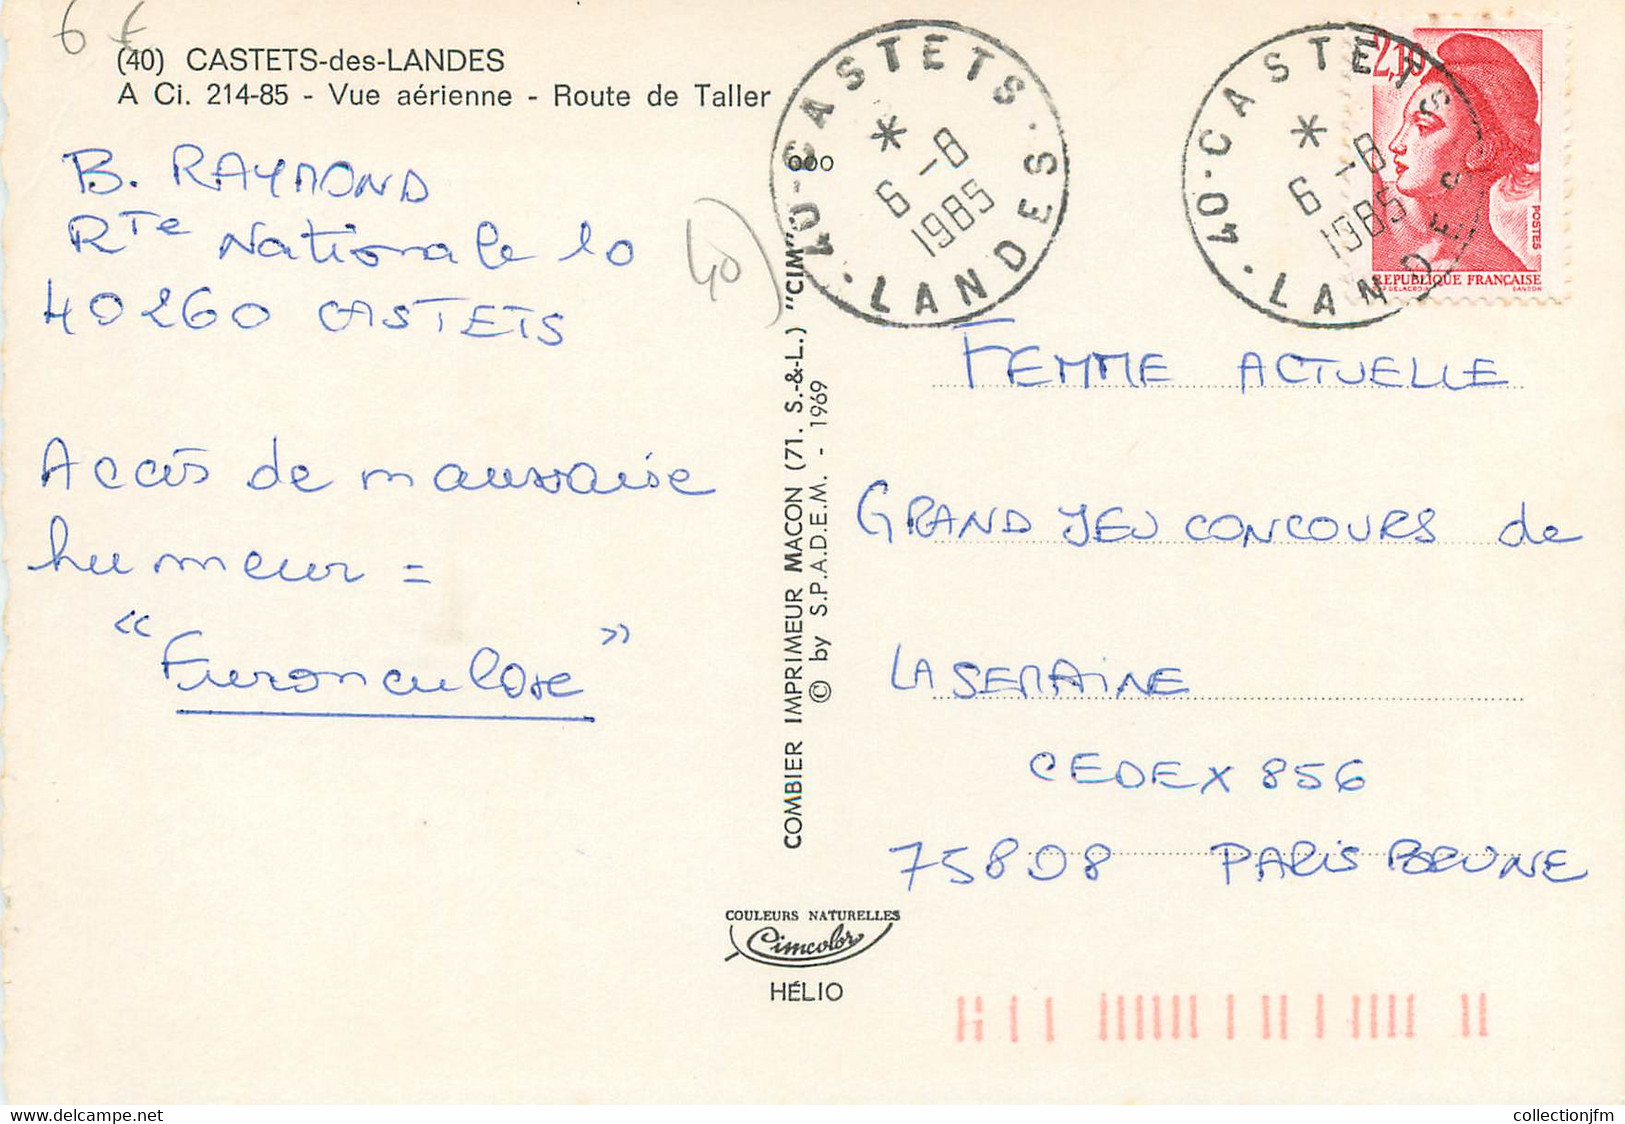 6 €
(40) CASTETS-des-LANDES
A Ci. 214-85 - Vue aérienne - Route de Taller
B. RAYMOND
RTe Nationale 10
40260 CASTETS
Accès de mauvaise
humeur =
“Furonculose”
40)
000
COMBIER IMPRIMEUR MACON (71. S.-&-L.) "CIM"
© by S.P.A.D.E.M. - 1969
COULEURS NATURELLES
Cimcolor
HÉLIO
40 - CASTETS · LANDES ·
*
6 -8
1985
40 · CASTETS · LANDES ·
*
6 -8
1985
2,10
POSTES
REPUBLIQUE FRANÇAISE
GANDON
FEMME ACTUELLE
GRAND JEU CONCOURS de
LA SEMAINE
CEDEX 856
75808 PARIS BRUNE
collectionjfm